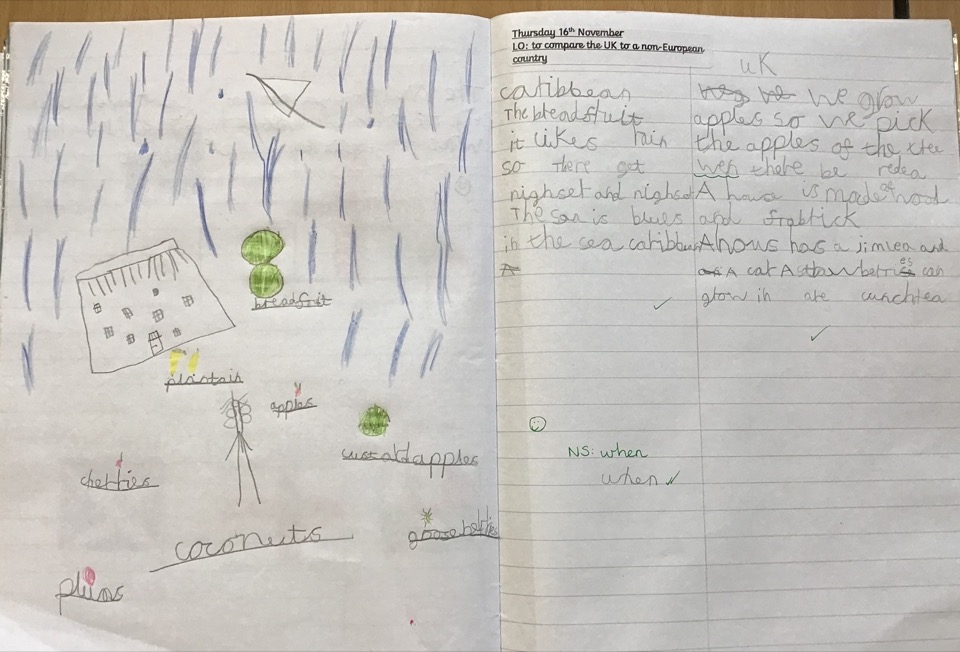 breadfruit
plantain
apples
custardapples
cherries
gooseberries
coconuts
plums
Thursday 16th November
LO: to compare the UK to a non-European
country
caribbean
The breadfruit
it likes rain
so There get
nighset and nighset
The san is blues
in the sea caribbean
UK
we grow
apples so we pick
the apples of the xtee
wen there be redea
A house is made of wood
and frabtick
A hows has a jimlea and
A cat A strawberries can
grow in are
NS: when
when